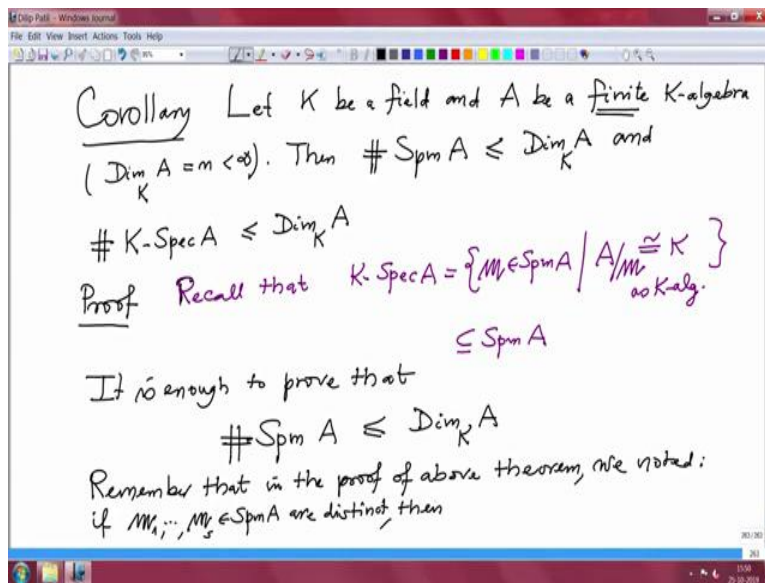 Dilip Patil - Windows Journal
File Edit View Insert Actions Tools Help
Corollary Let K be a field and A be a finite K-algebra
(Dim_K A = m < ∞). Then # Spm A ≤ Dim_K A and
# K-Spec A ≤ Dim_K A
Proof Recall that K-Spec A = {𝔪 ∈ Spm A | A/𝔪 ≅ K as K-alg.}
⊆ Spm A
It is enough to prove that
# Spm A ≤ Dim_K A
Remember that in the proof of above theorem, we noted:
if 𝔪_1, ..., 𝔪_s ∈ Spm A are distinct, then
263/263
263
15:50
25-10-2019